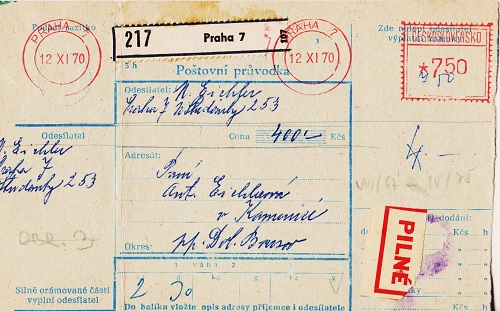 Podací lístko
PRAHA 7
12 XI 70
217 Praha 7
PRAHA 7
12 XI 70
Zde nalepí odesílatel
výplatní
ČESKOSLOVENSKO
*750
7,50
5 h
Poštovní průvodka
Odesílatel: N. Eichler
Praha 7 253
Cena 400,- Kčs
Odesílatel
N. Eichler
Praha 7
253
Adresát:
Paní
Ant. Eichlerová
v Kamenici
Okres: pp. Dol. Bousov
OBR. 3
PILNÉ
dodání:
Kčs h
Váha
2 50
Silně orámované části
vyplní odesílatel
Do balíku vložte opis adresy příjemce i odesílatele